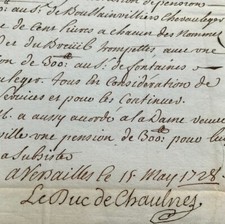 au S.r de Boullainvilliers Chevauleger
de Cent livres a chacun des Hommes
du Breüil trompettes avec une
de 300.tt au S.r de fontaines
leger. tous En Considération de
Services et pour les Continuer.
a aussy acordé a la Dame veuve
ville une pension de 300.tt pour lui
a Subsister
a Versailles le 15 May 1728.
Le Duc de Chaulnes